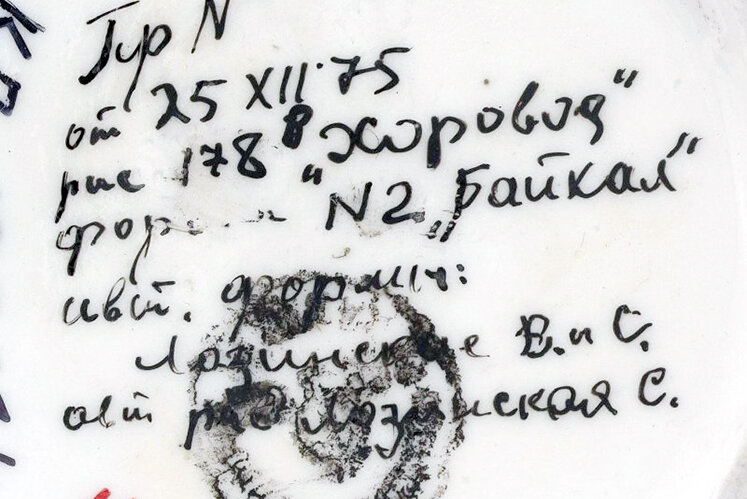 Гур N
от 25 XII 75
рис 1788 "Хоровод"
форма N2 „Байкал"
авт. формы:
Лозинские В. и С.
авт рис Лозинская С.